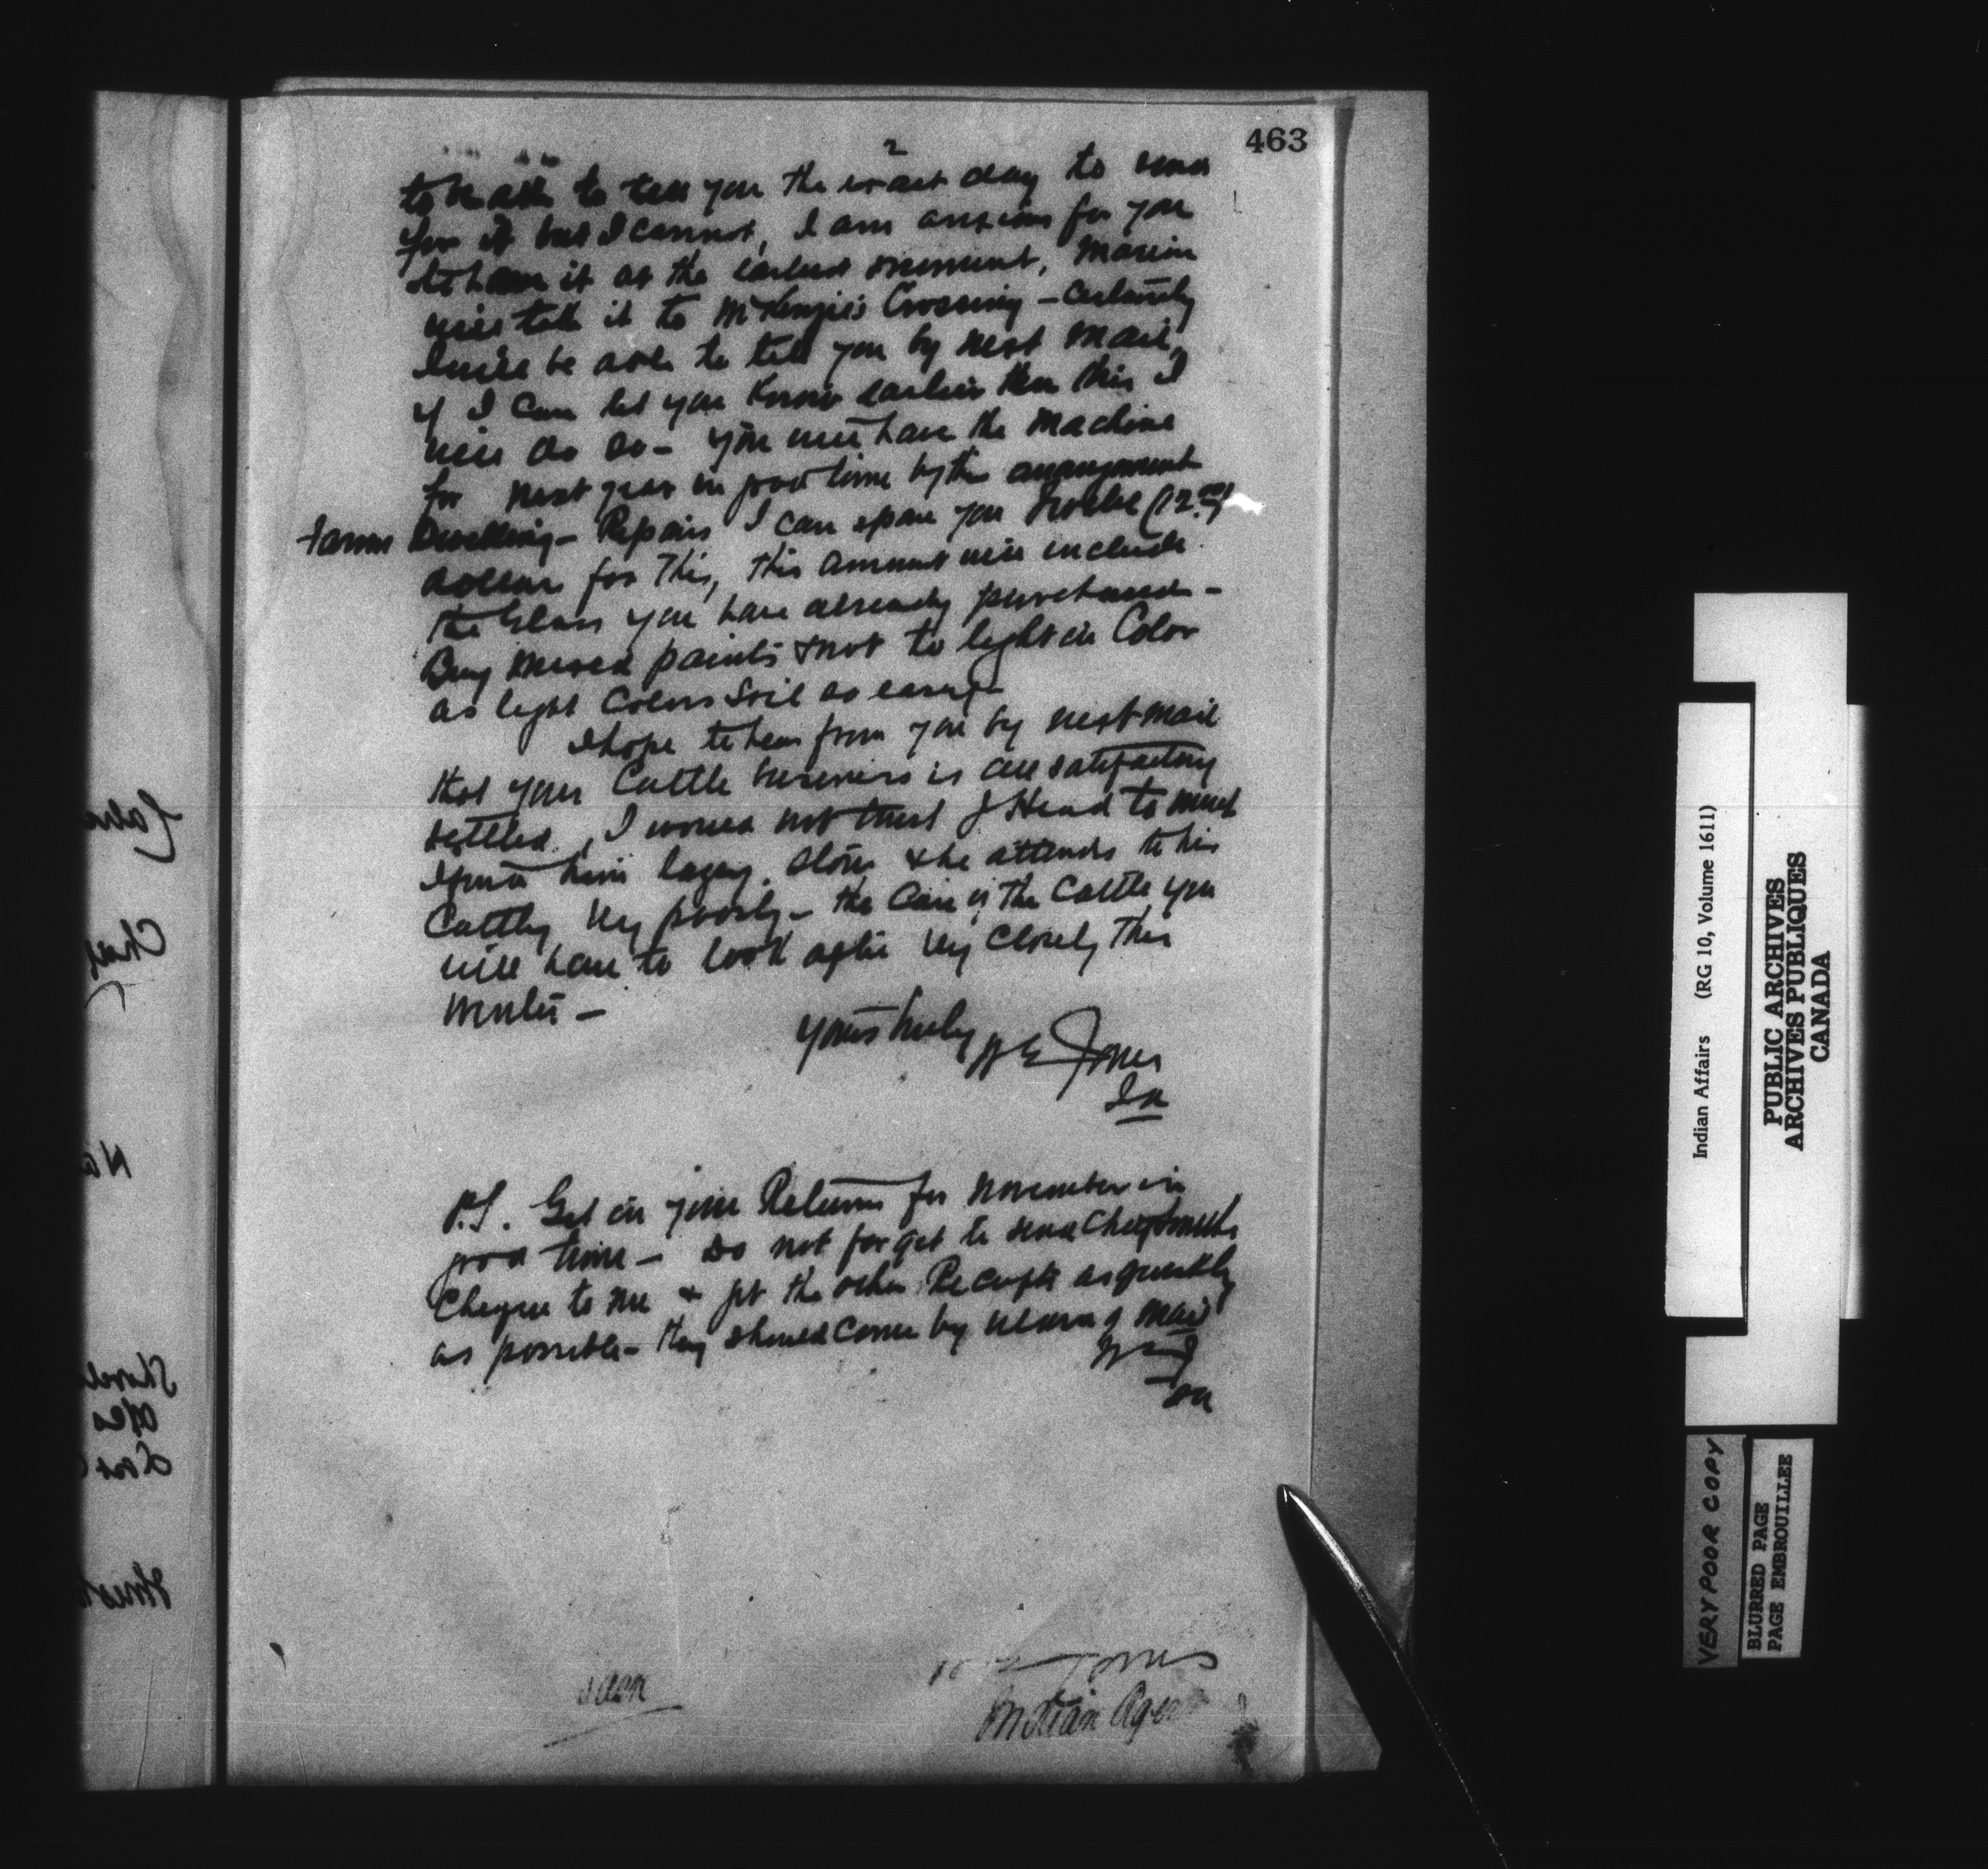 463
2
to be able to tell you the exact day to send
for it but I cannot, I am anxious for you
to have it at the earliest moment,
will take it to McKenzie's Crossing - Certainly
I will be able to tell you by next mail,
if I can let you know earlier than this I
will do so - you will have the Machine
for next year in good time by the arrangement
Farm Dwelling - Repairs I can spare you twelve (12.00)
dollars for this, this amount will include
the Glass you have already purchased -
Buy mixed paints & not to light in Color
as light Colors Soil so easily -
I hope to hear from you by next mail
that your Cattle business is all satisfactory
settled, I would not trust J Head to much
I found him lazy, slow & he attends to his
Cattle very poorly - the Care of the Cattle you
will have to look after very closely this
Winter -
Yours truly W E Jones
IA
P.S. Get in your Returns for November in
good time - Do not forget to send
Cheque to me & get the other Receipts as quickly
as possible - they should come by return of mail
WEJ
IA
Jones
Indian Agent
Indian Affairs (RG 10, Volume 1611)
PUBLIC ARCHIVES
ARCHIVES PUBLIQUES
CANADA
VERY POOR COPY
BLURED PAGE
PAGE EMBROUILLEE